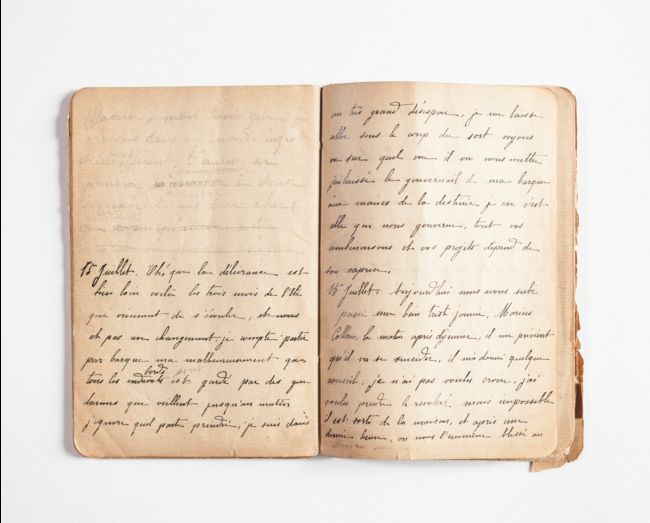 mais
ingrat
et l'aveu ne
pourra la douce
15 Juillet. Oh! que la délivrance est
bien loin voilà les trois mois de l'Ile
que viennent de s'écouler, et nous
et pas un changement, je compte partir
par barque ma malheureusement que
bords sont
tous les endroits est gardé par des gen
darmes que veillent jusqu'au matin
j'ignore quel partie prendre, je suis dans
un très grand désespoir, je me laisse
aller sous le coup du sort voyons
va sur quel voie il va nous mettre
j'ai laissé le gouvernail de ma barque
aux mains de la destinée, car c'est
elle que nous gouverne, tout vos
combinaisons et vos projets dépend de
son caprice.
15 Juillet. Aujourd'hui nous avons subi
passé une bien triste journée, Marcus
le matin après déjeuner, il me prévient
qu'il va se suicider, il m'a donné quelque
conseil, je n'ai pas voulu croire, j'ai
voulu prendre le revolver mais impossible
il est sorti de la maison, et après une
demie heure, on nous l'emmène blessé au